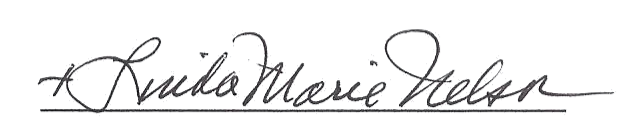 + Linda Marie Nelson